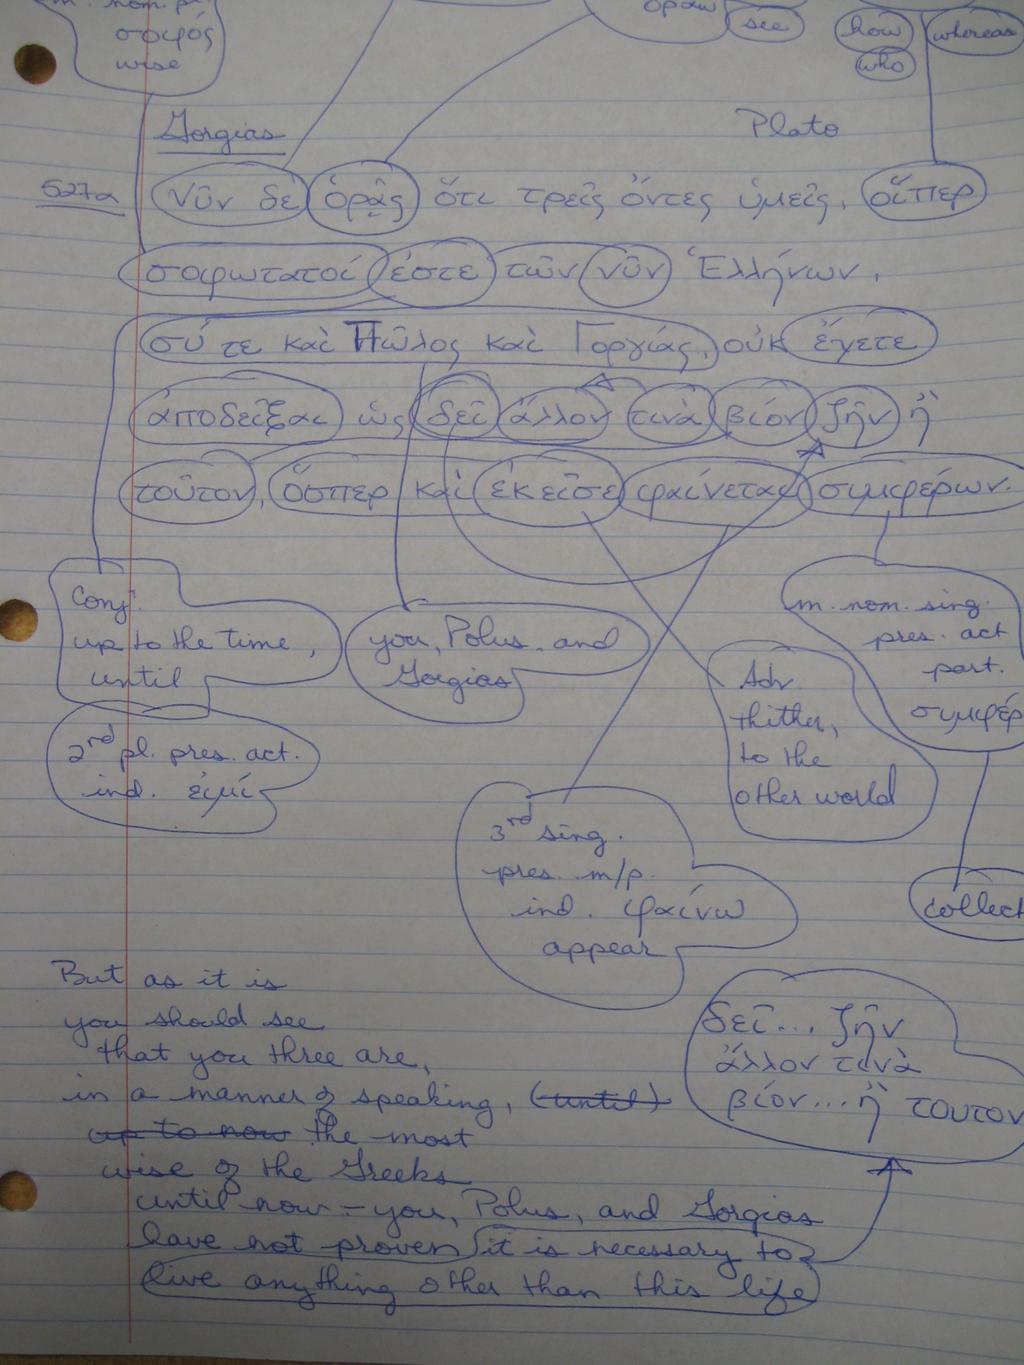 m. nom. pl.
σοφός
wise
ὁράω
see
how
whereas
who
Gorgias
Plato
527a
νῦν δε ὁρᾷς ὅτι τρεῖς ὄντες ὑμεῖς, οἵπερ
σοφωτατοί ἐστε τῶν νῦν Ἑλλήνων,
σύ τε καὶ Πῶλος καὶ Γοργίας, οὐκ ἔχετε
ἀποδεῖξαι ὡς δεῖ ἄλλον τινὰ βίον ζῆν ἢ
τοῦτον, ὅσπερ καὶ ἐκεῖσε φαίνεται συμφέρων.
Conj.
up to the time,
until
you, Polus, and
Gorgias
m. nom. sing.
pres. act
part.
συμφέρ
Adv.
thither,
to the
other world
2nd pl. pres. act.
ind. εἰμί
3rd sing.
pres. m/p.
ind. φαίνω
appear
collect
But as it is
you should see
that you three are,
in a manner of speaking, (until)
up to now the most
wise of the Greeks
until now - you, Polus, and Gorgias
have not proven it is necessary to
live anything other than this life
δεῖ... ζῆν
ἄλλον τινὰ
βίον... ἢ τουτον